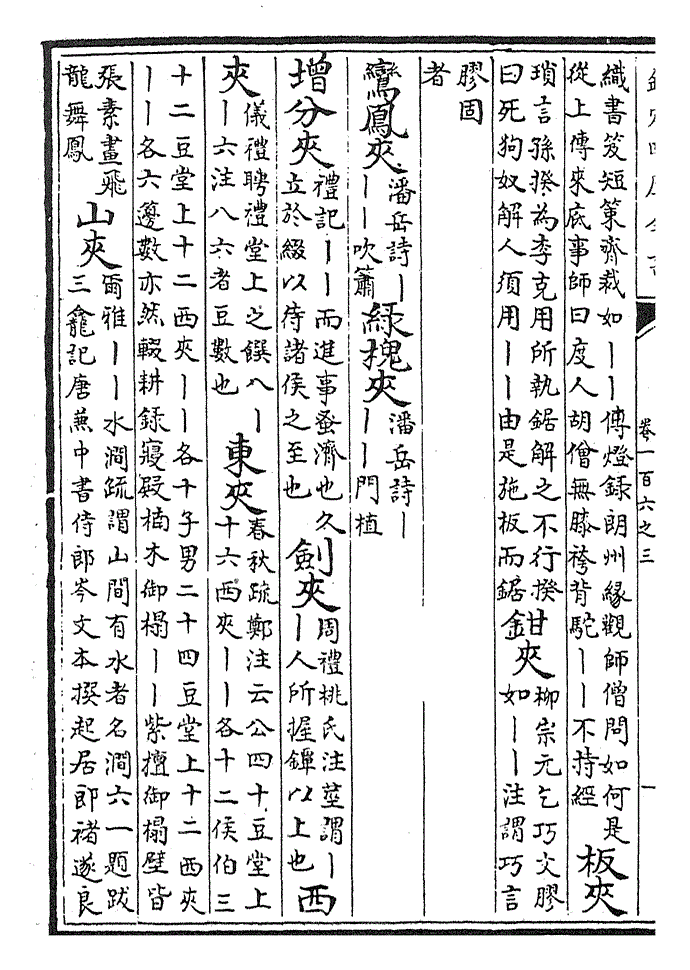 欽定四庫全書 卷一百六之三 一
織書笈短策齊裁如丨丨傳燈録朗州緣觀師僧問如何是
從上傳來底事師曰度人胡僧無膝袴背駝丨丨不持經
板夾
瑣言孫揆為李克用所執鋸解之不行揆
曰死狗奴解人須用丨丨由是施板而鋸
鉗夾
柳宗元乞巧文膠
如丨丨注謂巧言
膠固
者
鸞鳳夾
潘岳詩丨
丨丨吹簫
緑槐夾
潘岳詩丨
丨丨門植
增分夾
禮記丨丨而進事蚤濟也久
立於綴以待諸侯之至也
劍夾
周禮桃氏注莖謂丨
丨人所握鐔以上也
西
夾
儀禮聘禮堂上之饌八丨
丨六注八六者豆數也
東夾
春秋疏鄭注云公四十豆堂上
十六西夾丨丨各十二侯伯三
十二豆堂上十二西夾丨丨各十子男二十四豆堂上十二西夾
丨丨各六籩數亦然輟耕録寢殿楠木御榻丨丨紫擅御榻壁皆
張素畫飛
龍舞鳳
山夾
爾雅丨丨水澗疏謂山間有水者名澗六一題跋
三龕記唐兼中書侍郎岑文本撰起居郎褚遂良